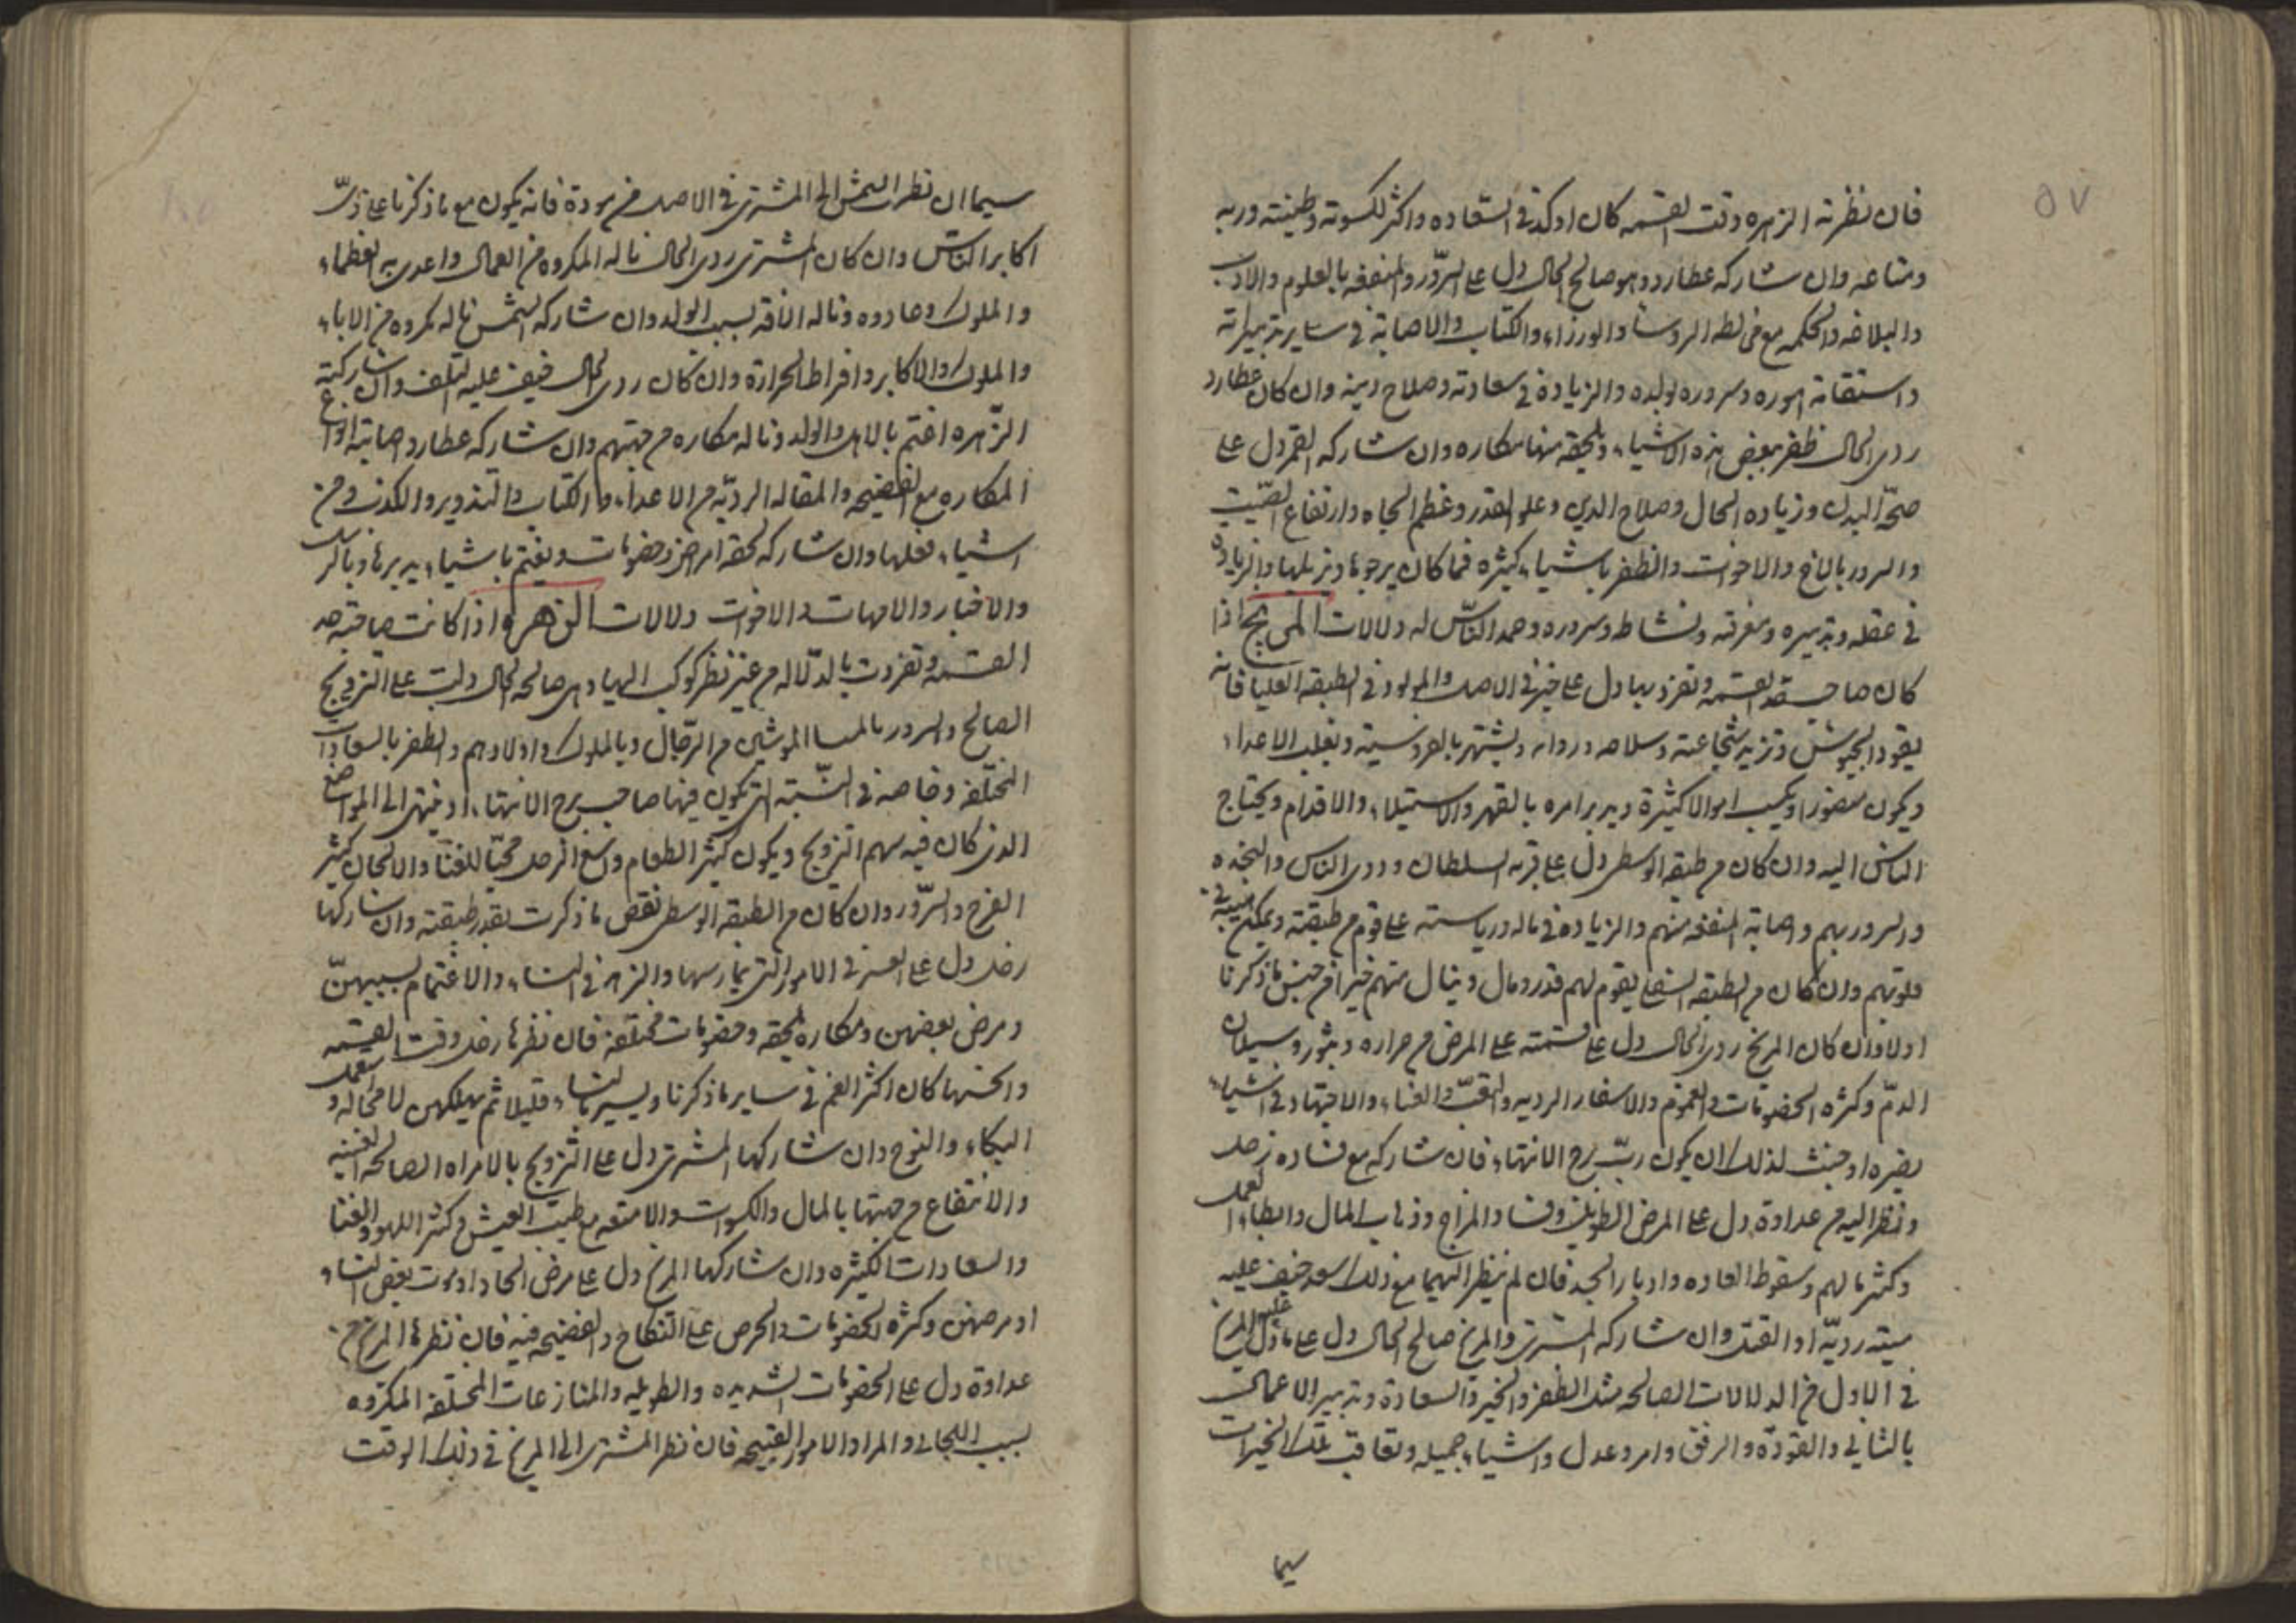 ٥٧
فان نظرته الزهره وقت القسمه كان اوكد في السعاده واكثر لكسوته وطينته وربه
ومتاعه وان شاركه عطارد وهو صالح الحال دل على السرور والمنفعه بالعلوم والاداب
والبلاغه والحكمه مع مخالطه الروسا والوزراء والكتاب والاصابة في ساير تدبيراته
واستقامة اموره وسروره لولده والزيادة في سعادته وصلاح دينه وان كان عطارد
ردى الحال ظفر ببعض هذه الاشياء ويلحقه منها مكاره وان شاركه القمر دل على
صحة البدن وزياده الحال وصلاح الدين وعلو القدر وعظم الجاه وارتفاع الصيت
والسرور بالاخ والاخوات والظفر باشياء كثيره مما كان يرجوها والزياده
في عقله وتدبيره ومعرفته ونشاط وسروره وحمد الناس له ودلالات المريخ اذا
كان صاحب قد القسمه وتفرد بها دل على خير في الاصل والمولود في الطبقه العليا فانه
يقود الجيوش وتزيد شجاعته وسلاحه ودوابه ويشتهر بالفروسية ويغلب الاعداء
ويكون منصورا ويكسب اموالا كثيرة ويدبر امره بالقهر والاستيلاء والاقدام ويحتاج
الناس اليه وان كان من طبقه الوسطى دل على قربه السلطان وذوى الباس والنجده
والسرور بهم واصابة المنفعه منهم والزياده في ماله ورياسته على قوم من طبقته ويمكن هيبته في
قلوبهم وان كان من الطبقه السفلى يقوم لهم قدر ومال وينال منهم خيرا من جنس ما ذكرنا
اولا وان كان المريخ ردى الحال دل على قسمته على المرض من حراره وبثور وسيلان
الدم وكثره الخصومات والهموم والاسفار الرديه والتعب والعناء والاجتهاد في اشياء
يضره وحينئذ لذلك ان يكون رب برج الانتهاء فان شاركه مع فساده زحل
ونظر اليه من عداوة دل على المرض الطويل وفساد المزاج وذهاب المال وابطاء العمل
وكثر ما لهم وسقوط العاده وادبار الجد فان لم ينظر اليهما مع ذلك سعد خيف عليه
ميتة رديه او القتل وان شاركه المشترى والمريخ صالح الحال دل على ما دل عليه المريخ
في الاول من الدلالات الصالحه مثل الظفر والخيرة والسعادة وتدبير الاعمال
بالتانى والقوده والرفق وامر وعدل واشياء جميله وتعاقب تلك الخيرات
سيما
سيما ان نظر الشمس الى المشترى في الاصل من مودة فانه يكون مع ما ذكرنا على
اكابر الناس وان كان المشترى ردى الحال ناله المكروه من العمال واعدى به العظماء
والملوك وعادوه وناله الافة بسبب الولد وان شاركه الشمس ناله مكروه من الاباء
والملوك والاكابر وافراط الحرارة وان كان ردى الحال خيف عليه التلف وان شاركته
الزهره اغتم بالاهل والولد وناله مكاره من جهتهم وان شاركه عطارد اصابته انواع
المكاره مع الفضيحه والمقاله الرديه من الاعداء والكتاب والتزوير والكذب ومن
اشياء فعلها وان شاركه القمر لحقه امراض وخصومات ويغتم باشياء يدبرها وبالرسل
والاخبار والامهات والاخوات ودلالات الزهره اذا كانت صاحبة حد
القسمه وتفردت بالدلاله من غير نظر كوكب اليها وهى صالحه الحال دلت على التزويج
الصالح والسرور بالنسا الموسين من الرجال وبالملوك واولادهم والظفر بالسعادات
المختلفه وخاصه في السنة التي تكون فيها صاحب برج الانتهاء او تنتهى الى المواضع
الذى كان فيه سهم التزويج ويكون كثير الطعام واسع الرحل محبا للغنا والالحان كثير
الفرح والسرور وان كان من الطبقه الوسطى نقص ما ذكرت بقدر طبقته وان شاركها
زحل دل على العسر في الامور التي يمارسها والزهد في النساء والاغتمام بسببهن
ومرض بعضهن ومكاره تلحقه وخصومات مختلفه فان نظرها زحل وقت القسمه
وانحسها كان اكثر الغم في ساير ما ذكرنا ويسير بالنساء قليلا ثم يهلكهن لا محاله ويتصل
البكاء والنوح وان شاركها المشترى دل على التزويج بالامراه الصالحه الغنيه
والانتفاع من جهتها بالمال والكسوات والامتعه مع طيب العيش وكثره اللهو والغنا
والسعادات الكثيره وان شاركها المريخ دل على مرض الحاد او موت بعض النساء
او مرضهن وكثره الخصومات والحرص على النكاح والفضيحه فيه فان نظرها المريخ من
عداوة دل على الخصومات الشديده والطويله والمنازعات المختلفه المكروه
بسبب اللجاج والمرا والامور القبيحه فان نظر المشترى الى المريخ في ذلك الوقت